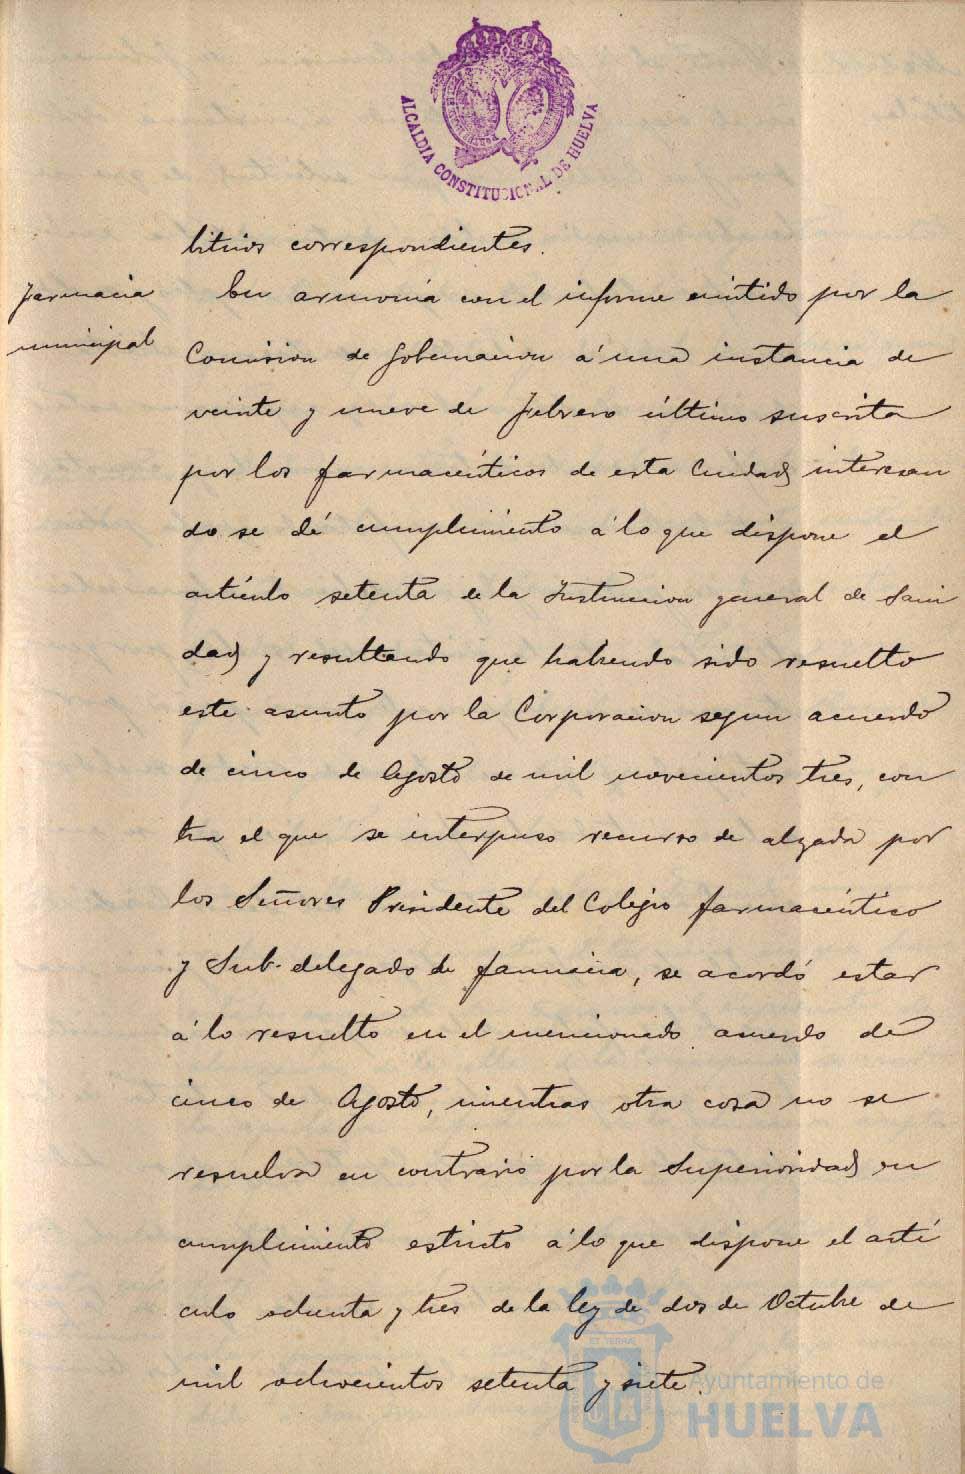 ALCALDIA CONSTITUCIONAL DE HUELVA
bitrios correspondientes.
Farmacia
municipal
En armonía con el informe emitido por la
Comision de Gobernacion á una instancia de
veinte y nueve de Febrero último suscrita
por los farmacéuticos de esta Ciudad interesan
do se dé cumplimiento á lo que dispone el
artículo setenta de la Instruccion general de Sani
dad y resultando que habiendo sido resuelto
este asunto por la Corporacion segun acuerdo
de cinco de Agosto de mil novecientos tres, con
tra el que se interpuso recurso de alzada por
los Señores Presidente del Colegio farmacéutico
y Sub-delegado de farmacia, se acordó estar
á lo resuelto en el mencionado acuerdo de
cinco de Agosto, mientras otra cosa no se
resuelva en contrario por la Superioridad en
cumplimiento estricto á lo que dispone el artí
culo ochenta y tres de la ley de dos de Octubre de
mil ochocientos setenta y siete.
Ayuntamiento de
HUELVA